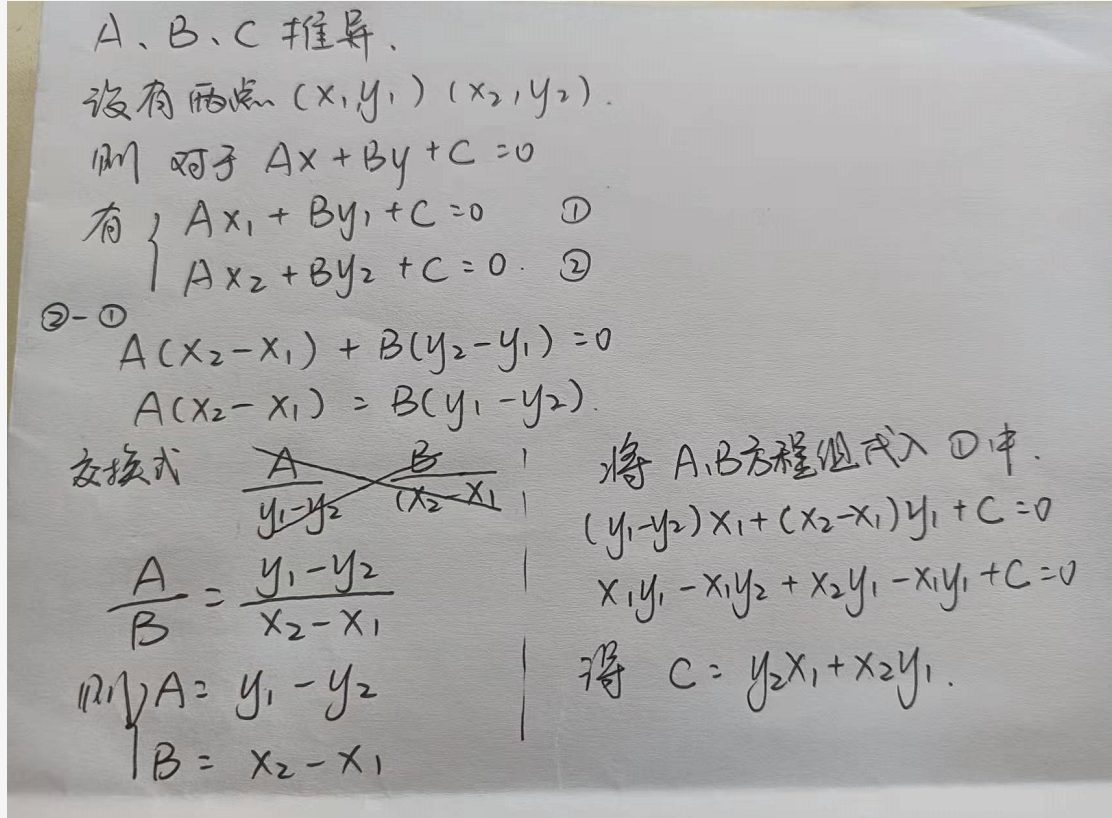 A、B、C 推导.
设有两点 (x₁,y₁) (x₂,y₂).
则 对于 Ax+By+C=0
有 { Ax₁+By₁+C=0 ①
Ax₂+By₂+C=0. ②
②-①
A(x₂-x₁)+B(y₂-y₁)=0
A(x₂-x₁)=B(y₁-y₂).
交换式 A/(y₁-y₂) B/(x₂-x₁
A/B = (y₁-y₂)/(x₂-x₁)
则 { A=y₁-y₂
B=x₂-x₁
将 A、B方程组代入 ①中.
(y₁-y₂)x₁+(x₂-x₁)y₁+C=0
x₁y₁-x₁y₂+x₂y₁-x₁y₁+C=0
得 C=y₂x₁+x₂y₁.